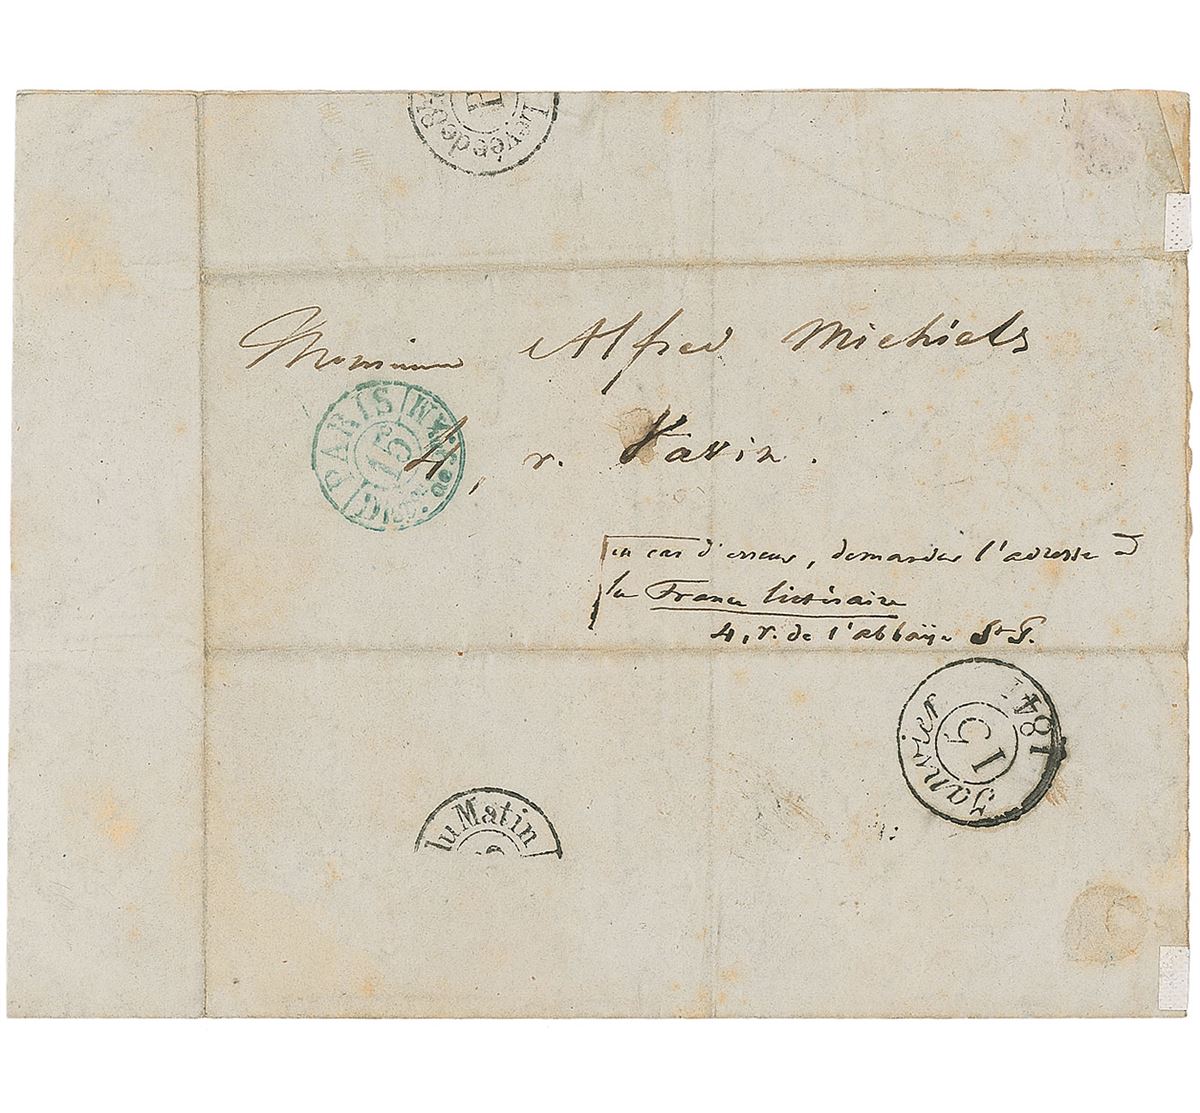 Levée de 8
E
Monsieur Alfred Michiels
4, r. Vavin.
PARIS
15
en cas d'erreur, demander l'adresse à
la France littéraire
4, r. de l'abbaye St G.
Janvier
15
184
du Matin